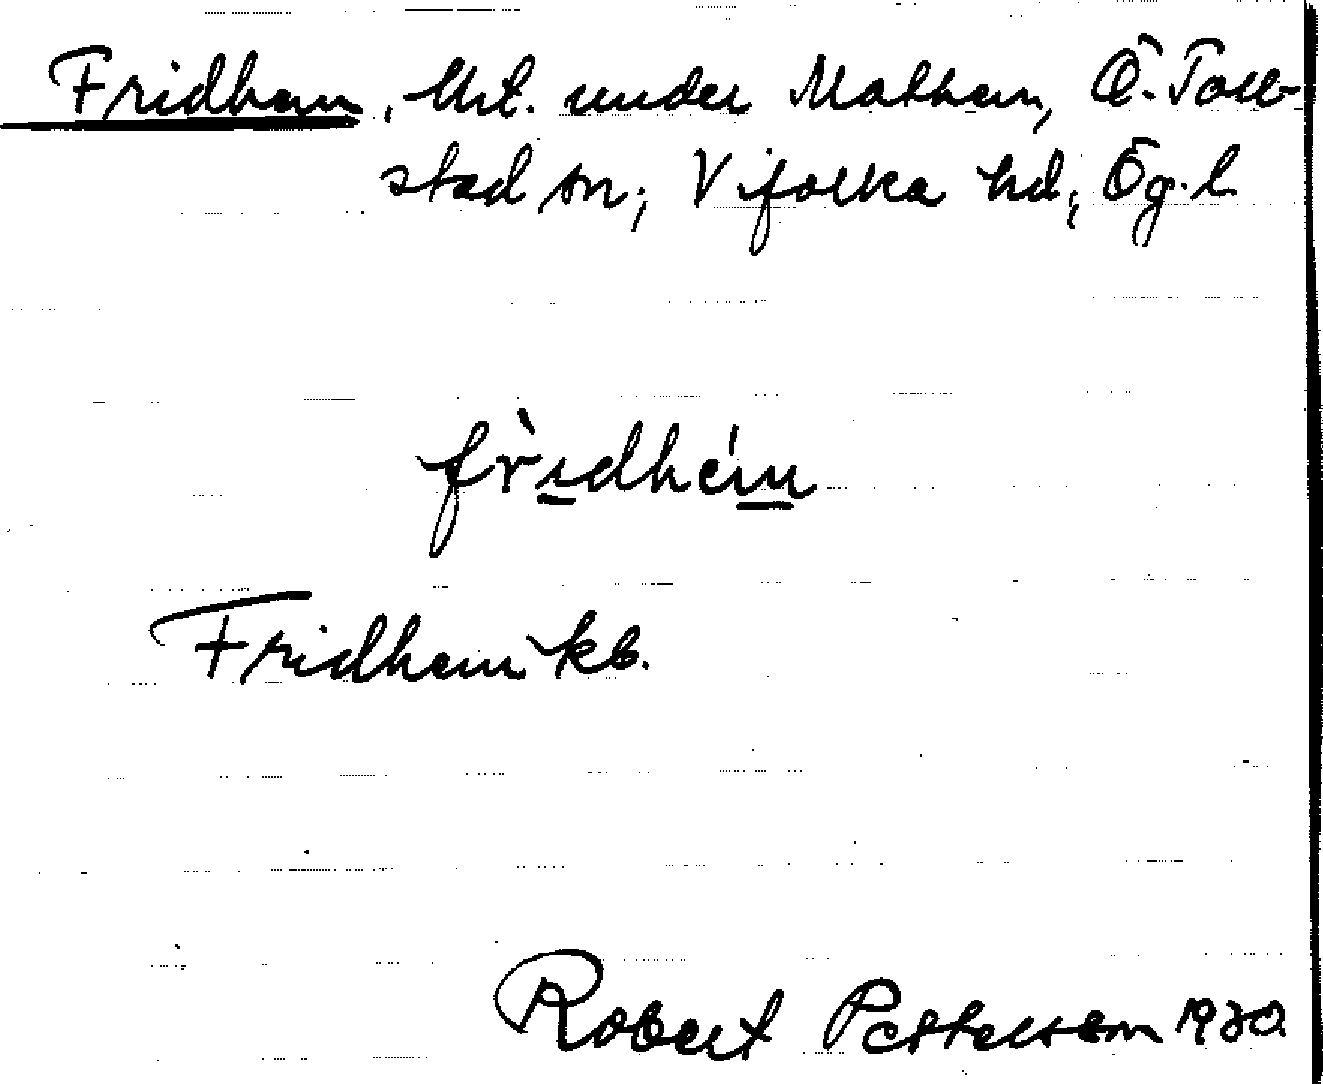 Fridhem, Urt. under Mathem, Ö. Toll-
stad sn; Vifolka hd; Ög. l
fridhem
Fridhem kb.
Robert Pettersson 1930.